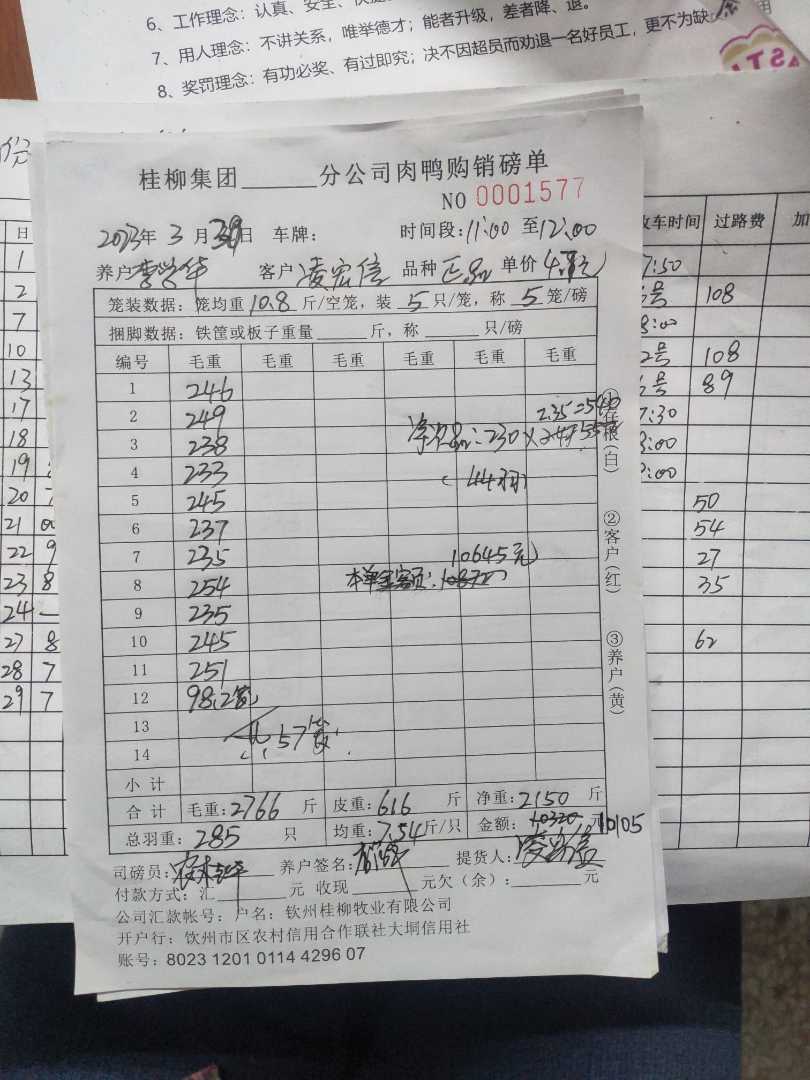 6、工作理念：认真、安全、快
7、用人理念：不讲关系，唯举德才；能者升级，差者降、退。
8、奖罚理念：有功必奖、有过即究；决不因超员而劝退一名好员工，更不为缺
桂柳集团______分公司肉鸭购销磅单
NO 0001577
2023年 3月 30日 车牌： 时间段：11:00 至12:00
养户 李学华 客户 凌宏信 品种 正品 单价 元
笼装数据：笼均重 10.8 斤/空笼，装 5 只/笼，称 5 笼/磅
捆脚数据：铁筐或板子重量______斤，称______只/磅
编号 毛重 毛重 毛重 毛重 毛重 毛重
1 246
2 249 2.35=540
3 238 净次品：230×
4 233 (44羽)
5 245
6 237
7 235 10645元
8 254 本单金额：
9 235
10 245
11 251
12 98.2笼
13 共57笼
14
小计
合计 毛重：2766 斤 皮重：616 斤 净重：2150 斤
总羽重：285 只 均重：7.54斤/只 金额：10320元 10105
司磅员： 养户签名： 提货人：凌宏信
付款方式：汇______元 收现______元欠（余）：______元
公司汇款帐号：户名：钦州桂柳牧业有限公司
开户行：钦州市区农村信用合作联社大垌信用社
账号：8023 1201 0114 4296 07
①存根（白）
②客户（红）
③养户（黄）
日
1
2
7
10
13
17
18
19
20 7
21
22 9
23 8
24 一
27 8
28 7
29 7
收车时间 过路费 加
7:50
号 108
8:00
2号 108
号 89
7:30
8:00
:00
50
54
27
35
62